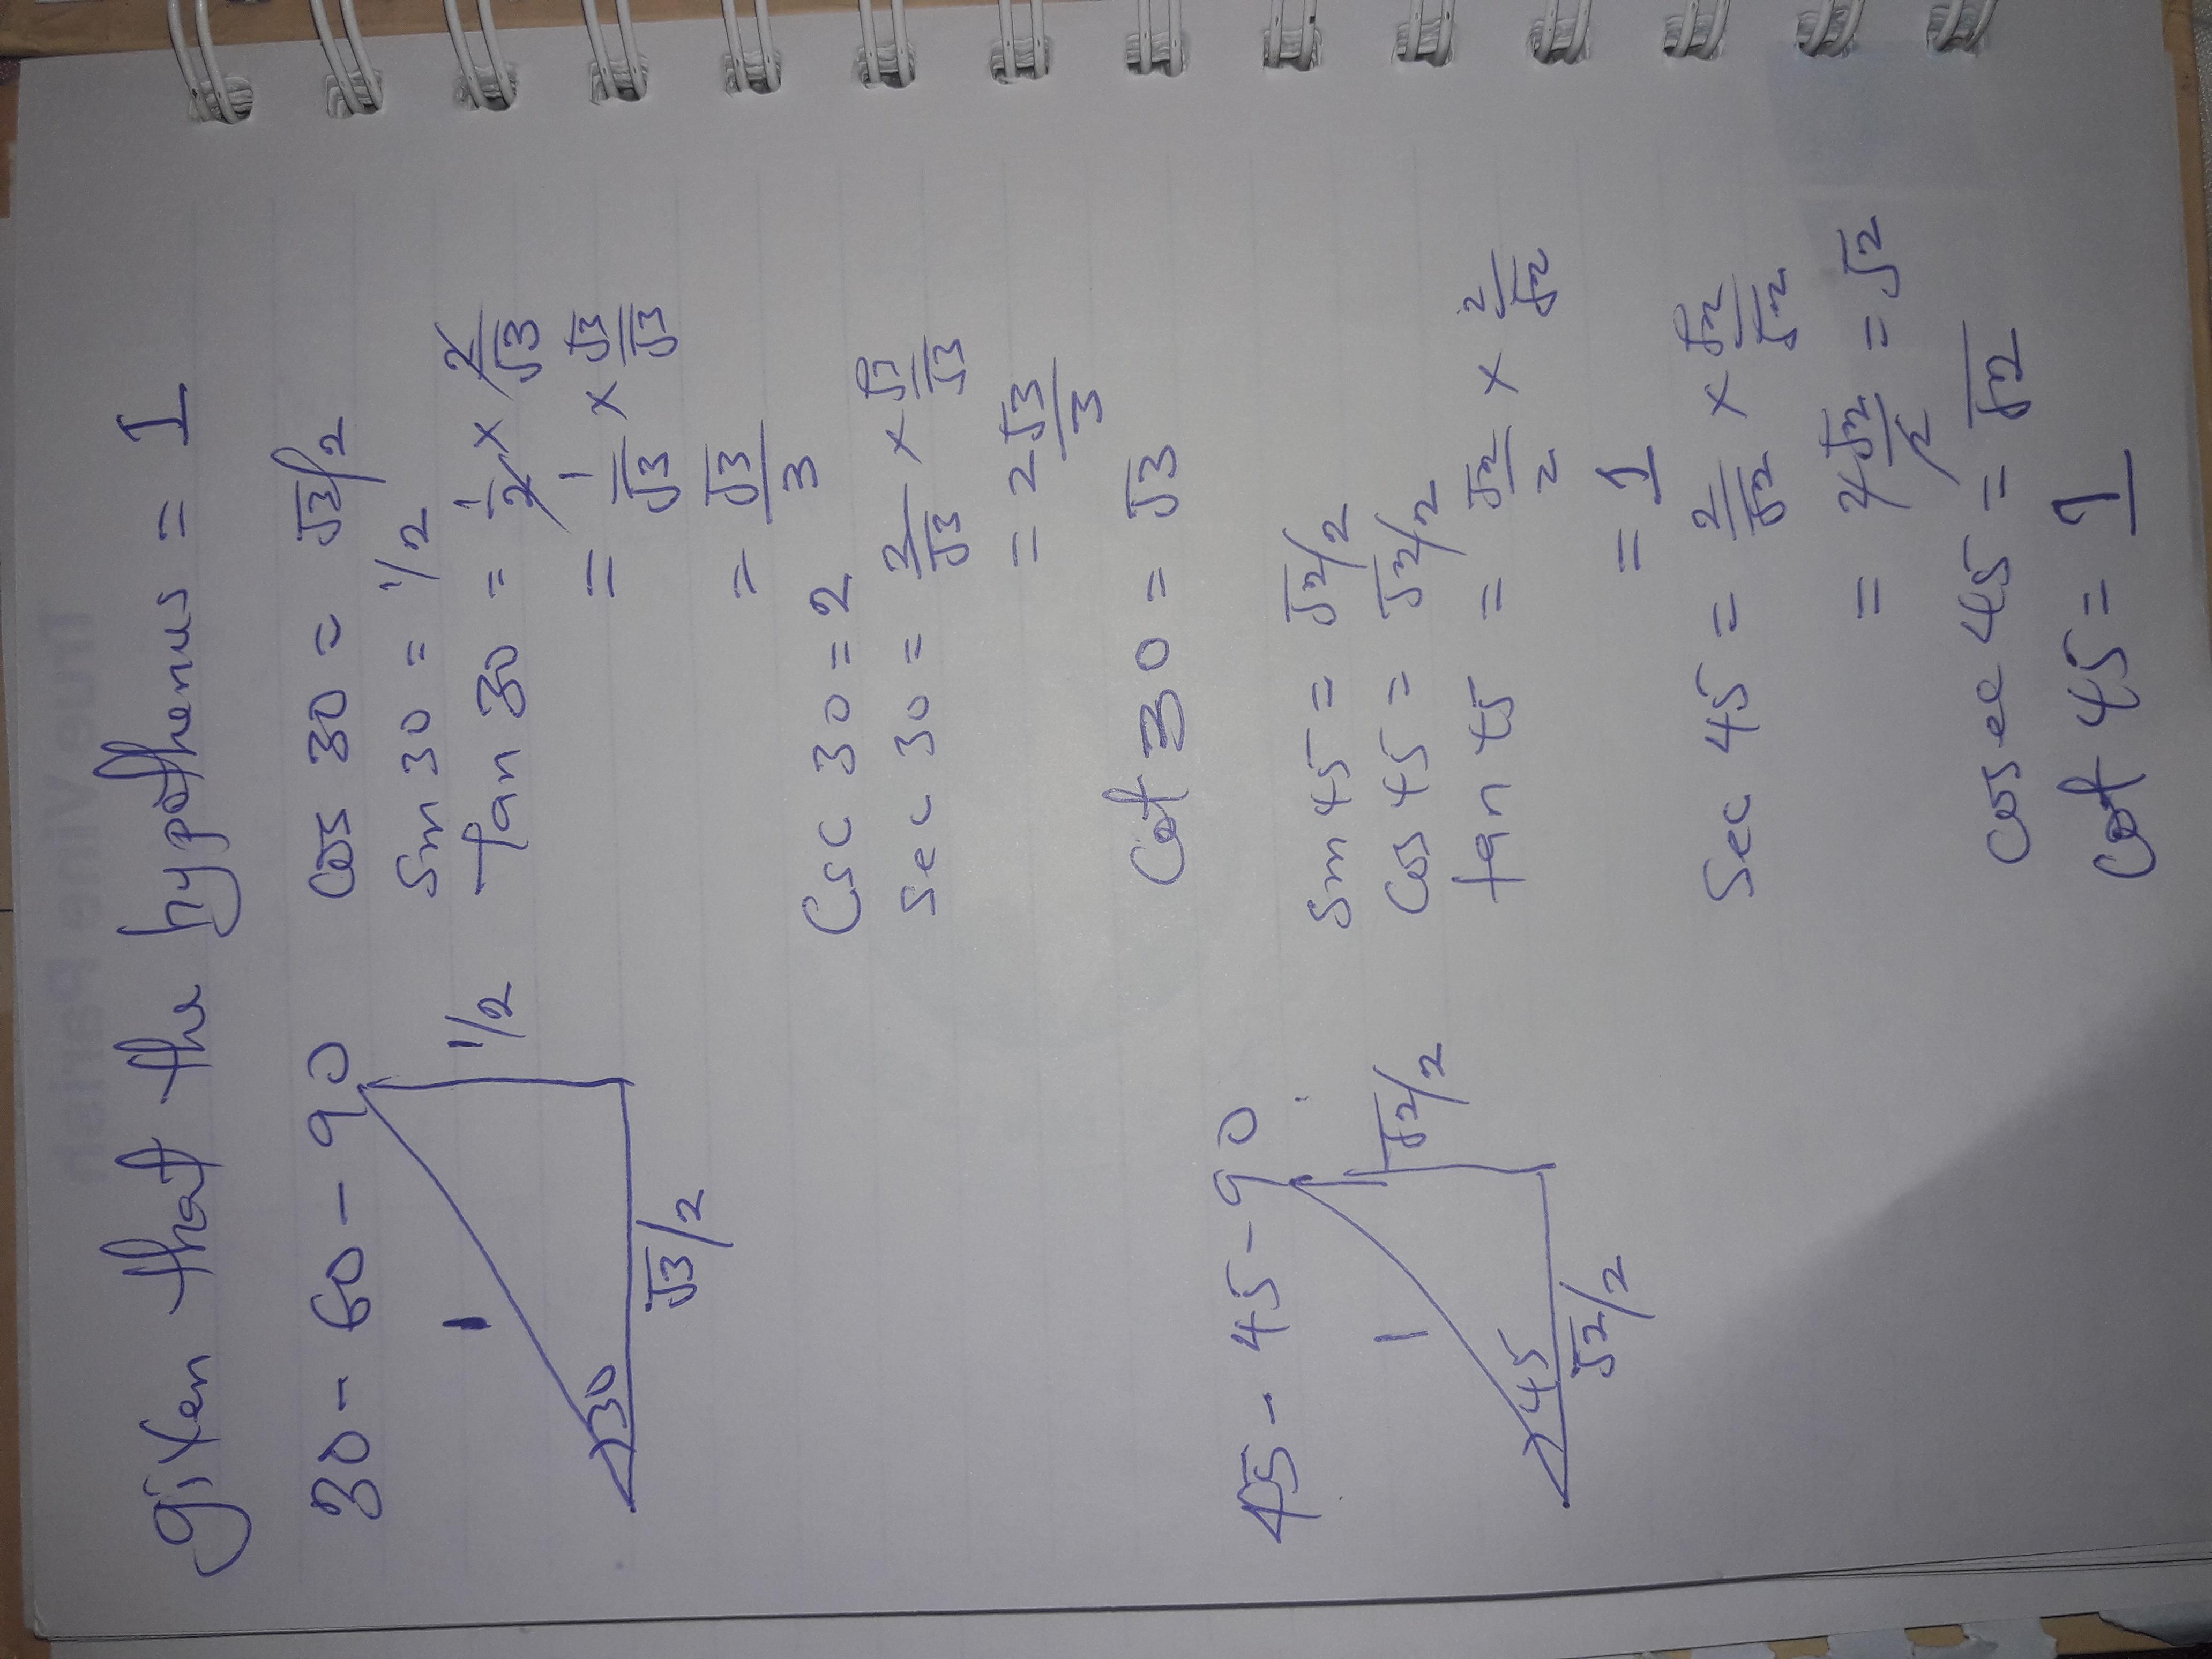 given that the hypothenus = 1
30 - 60 - 90
1
1/2
30
√3/2
cos 30 = √3/2
Sin 30 = 1/2
tan 30 = 1/2 × 2/√3
= 1/√3 × √3/√3
= √3/3
Csc 30 = 2
Sec 30 = 2/√3 × √3/√3
= 2√3/3
Cot 30 = √3
45 - 45 - 90
1
√2/2
45
√2/2
Sin 45 = √2/2
Cos 45 = √2/2
tan 45 = √2/2 × 2/√2
= 1
Sec 45 = 2/√2 × √2/√2
= √2
cosec 45 = √2
Cot 45 = 1
True Vine Parish